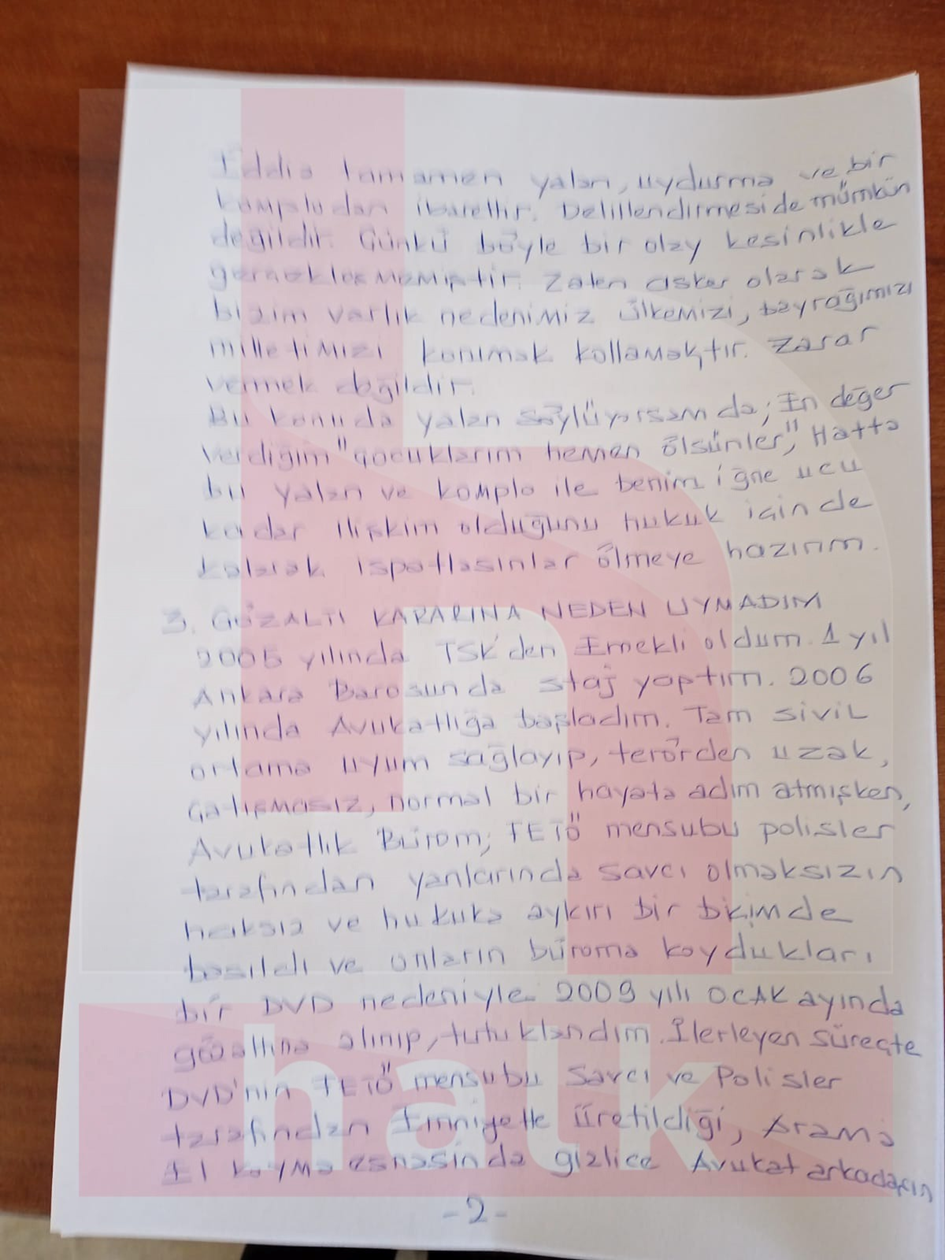 İddia tamamen yalan, uydurma ve bir
komplodan ibarettir. Delillendirmeside mümkün
değildir. Çünkü böyle bir olay kesinlikle
gerçekleşmemiştir. Zaten asker olarak
bizim varlık nedenimiz ülkemizi, bayrağımızı
milletimizi korumak kollamaktır. Zarar
vermek değildir.
Bu konuda yalan söylüyorsam da; En değer
verdiğim "çocuklarım hemen ölsünler," Hatta
bu yalan ve komplo ile benim iğne ucu
kadar ilişkim olduğunu hukuk içinde
kalarak ispatlasınlar ölmeye hazırım.
3. GÖZALTI KARARINA NEDEN UYMADIM
2005 yılında TSK'den Emekli oldum. 1 yıl
Ankara Barosunda staj yaptım. 2006
yılında Avukatlığa başladım. Tam sivil
ortama uyum sağlayıp, terörden uzak,
çatışmasız, normal bir hayata adım atmışken,
Avukatlık Bürom; FETÖ mensubu polisler
tarafından yanlarında savcı olmaksızın
haksız ve hukuka aykırı bir biçimde
basıldı ve onların büroma koydukları
bir DVD nedeniyle 2009 yılı OCAK ayında
gözaltına alınıp, tutuklandım. İlerleyen süreçte
DVD'nin FETÖ mensubu Savcı ve Polisler
tarafından Emniyette üretildiği, Arama
El koyma esnasında gizlice Avukat arkadaşın
-2-
halk